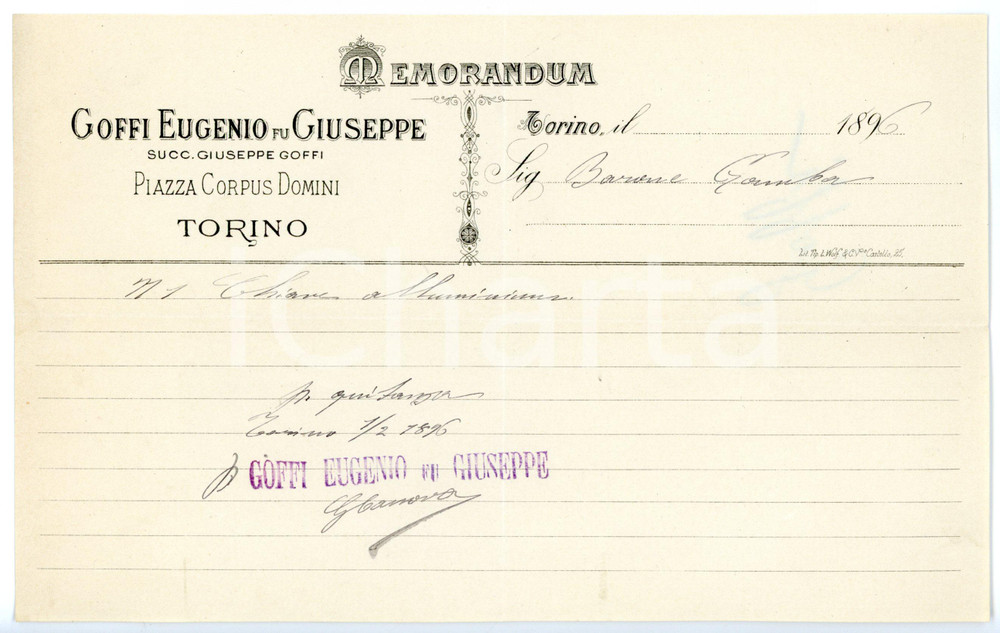 MEMORANDUM
GOFFI EUGENIO FU GIUSEPPE
SUCC. GIUSEPPE GOFFI
PIAZZA CORPUS DOMINI
TORINO
Torino, il 1896
Sig Barone Gamba
Lit. Tip. L. Wolf & C. Via Castello, 25.
N 1 Chiave alluminium
p. quitanza
Torino 1/2 1896
p GOFFI EUGENIO FU GIUSEPPE
GCanova
iCharta